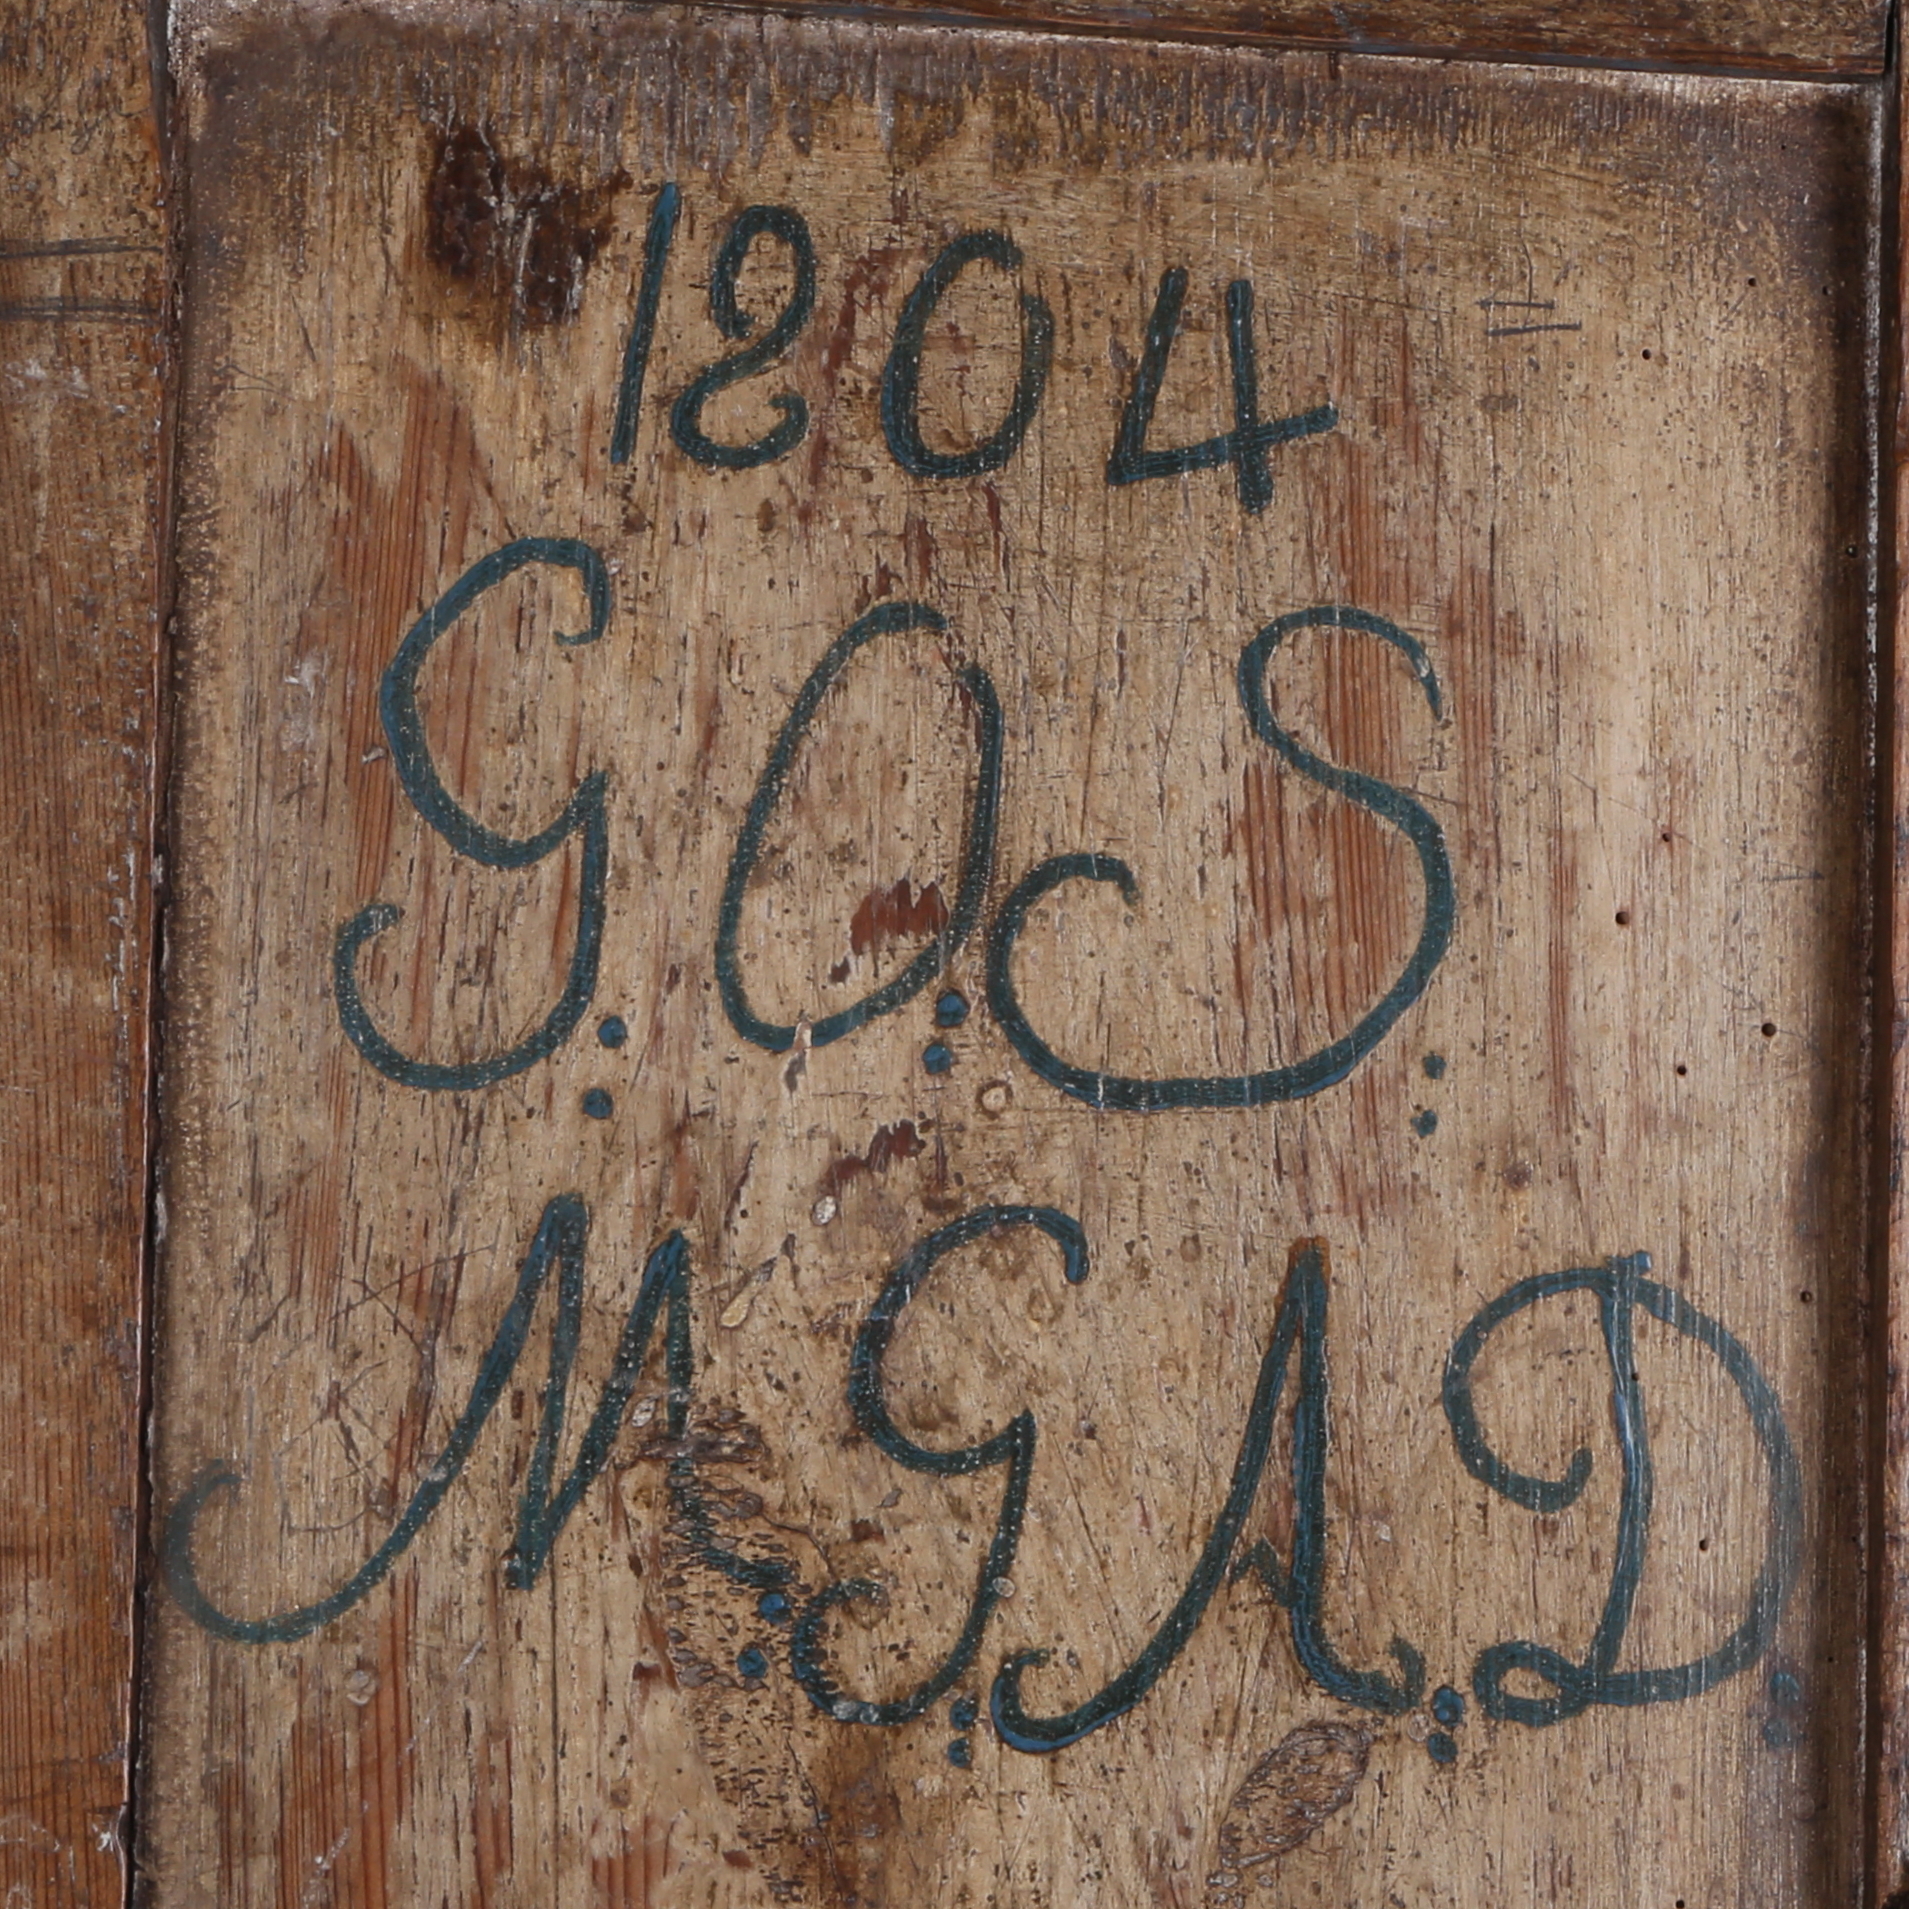 1804
G:O:S:
M:G:A:D: